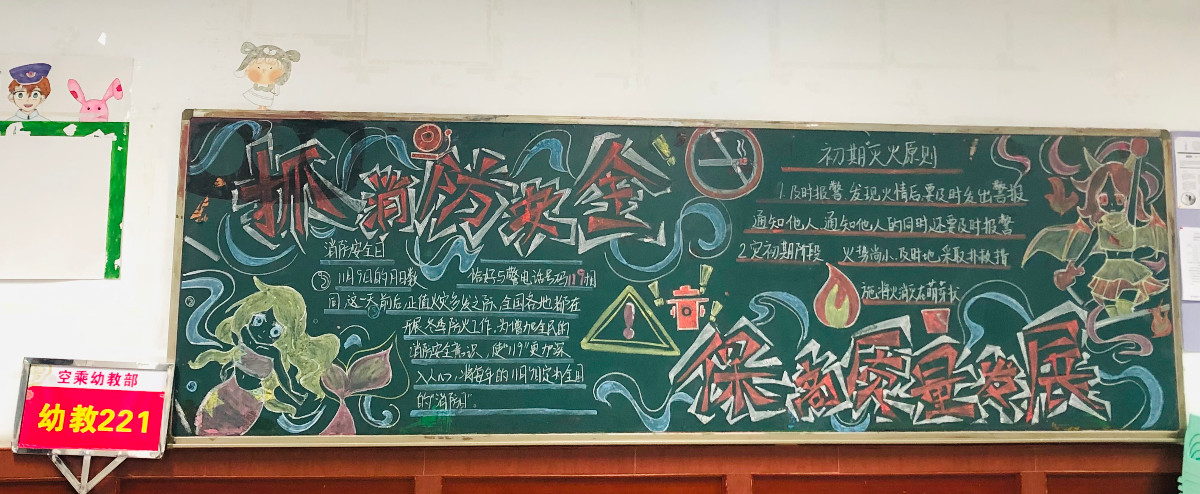 抓消防安全
消防安全日
11月9日的月日数 恰好与火警电话号码119相
同,这一天前后,正值火灾多发之际,全国各地都在
开展冬季防火工作,为增加全民的
消防安全意识,使"119"更加深
入人心,将每年的11月9日定为全国
的"消防日"。
初期灭火原则
1.及时报警 发现火情后要及时发出警报
通知他人、通知他人的同时还要及时报警
2.灾初期阶段 火势尚小、及时地采取扑救措
施,将火消灭在萌芽状
保高质量发展
空乘幼教部
幼教221